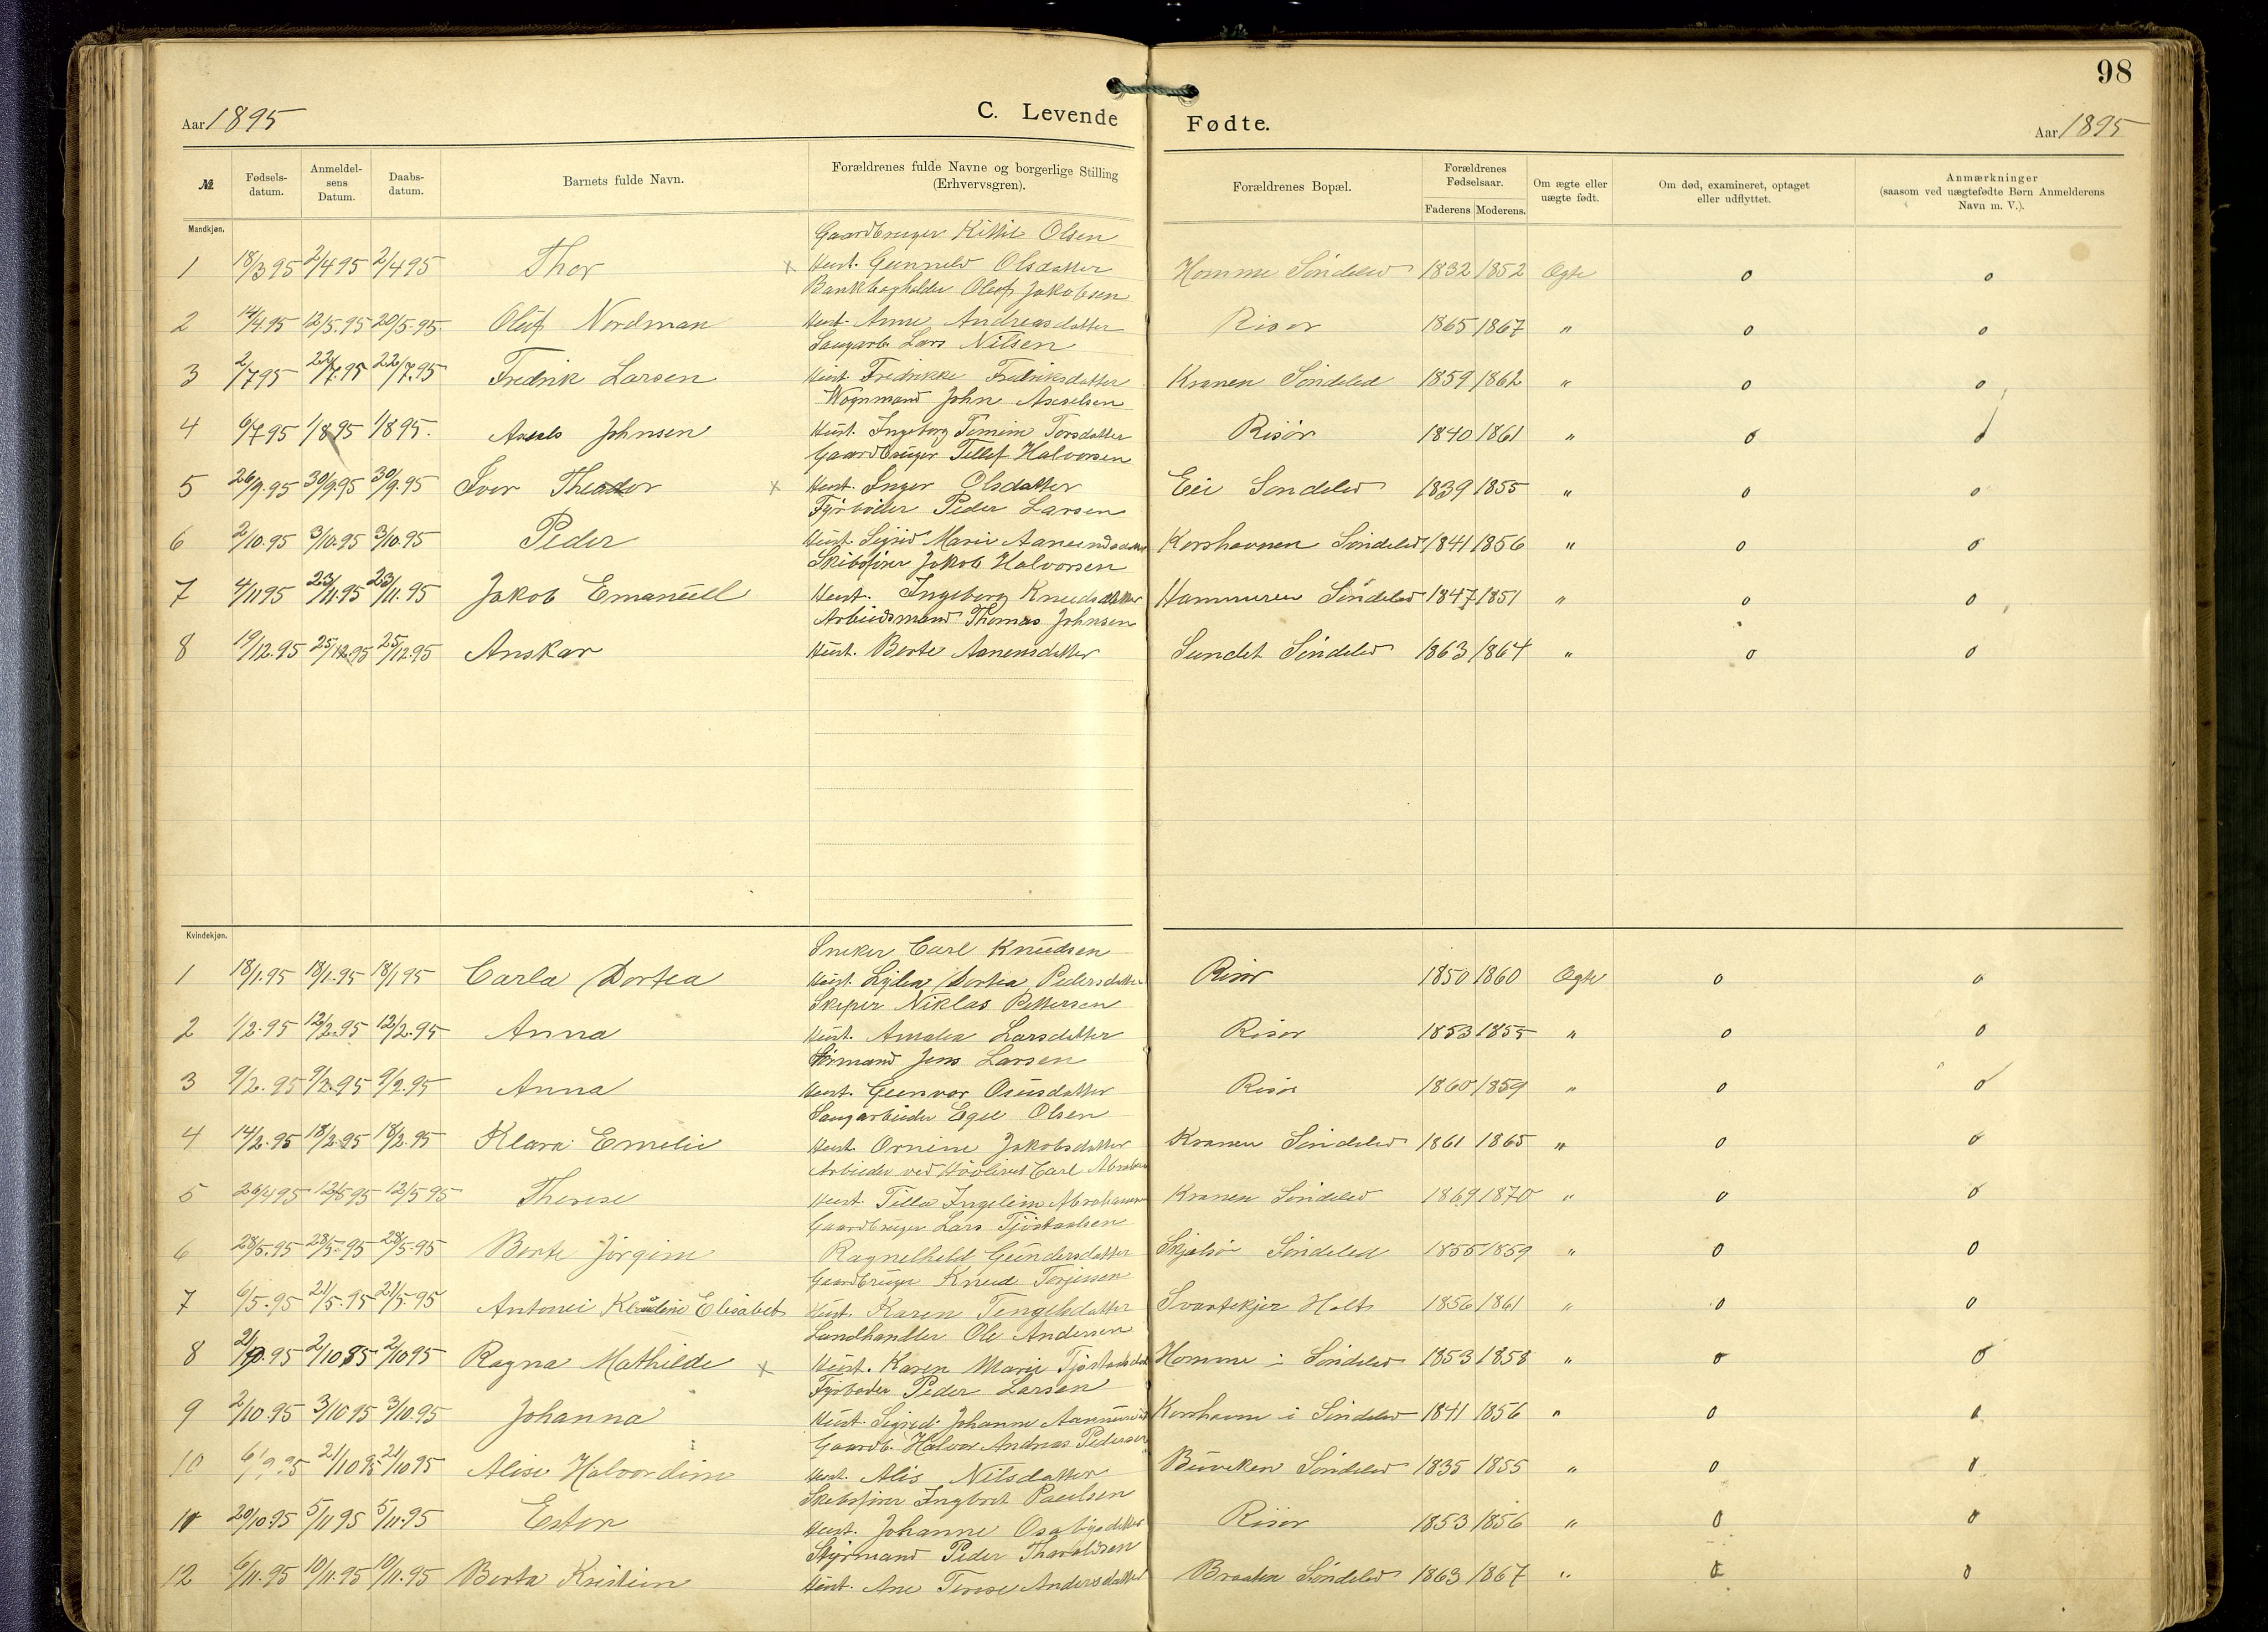 98
Aar 1895
C. Levende Fødte.
Aar 1895
№
Fødsels-datum.
Anmeldel-sens Datum.
Daabs-datum.
Barnets fulde Navn.
Forældrenes fulde Navne og borgerlige Stilling (Erhvervsgren).
Forældrenes Bopæl.
Forældrenes Fødselsaar.
Faderens
Moderens.
Om ægte eller uægte født.
Om død, examineret, optaget eller udflyttet.
Anmærkninger (saasom ved uægtefødte Børn Anmelderens Navn m. V.).
Mandkjøn.
Gaardbruger Kittil Olsen
1 18/3 95 2/4 95 2/4 95 Thor x Hust. Gunneld Olsdatter Homme Söndeled 1832 1852 Ægte o o
Bankbogholder Oluf Jakobsen
2 14/4.95 12/5.95 20/5.95. Oluf Nordman Hust. Anne Andreasdatter Risor 1865 1867 " o o
Saugarb. Lars Nilsen
3 2/7 95 22/7.95 22/7.95 Fredrik Larsen Hust. Fredrikke Fredriksdatter Kranen Söndeled 1859 1862 " o o
Vognmand John Axselsen
4 6/7 95 1/8 95 1/8 95. Axsels Johnsen Hust. Ingeborg Torsdatter Risör 1840 1861 " o o
Gaardbruger Tellef Halvorsen
5 26/9.95 30/9.95 30/9.95 Iver Theodor x Hust. Inger Olsdatter Eie Sondeled 1839 1855 " o o
Fyrböder Peder Larsen
6 2/10.95 3/10.95 3/10.95 Peder Hust. Sigrid Marie Korshavnen Söndeled 1841 1856 " o o
Skibsfører Jakob Halvorsen
7 4/11 95 23/11.95 23/11.95 Jakob Emanuell Hust. Ingeborg Knudsdatter Hammeren Söndeled 1847 1851 " o o
Arbeidsmand Thomas Johnsen
8 19/12.95 25/12.95 25/12.95 Anskar Hust. Berte Aanensdatter Sundet Söndeled 1863 1864 " o o
Kvindekjøn.
Sneker Carl Knudsen
1 18/1.95 18/1.95 18/1 95 Carla Dortea Hust. Dortea Pedersdatter Risör 1850 1860 Ægte o o
Skeper Niklas Pettersen
2 1/2.95 12/2.95 12/2.95 Anna Hust. Amalia Larsdatter Risor 1853 1855 " o o
Jens Larsen
3 9/2.95 9/2.95 9/2.95 Anna Hust. Gunvor Osusdatter Risör 1860 1859 " o o
Saugarbeider Egel Olsen
4 14/2.95 18/2.95 18/2.95 Klara Emelie Hust. Ornine Jakobsdatter Kranen Söndeled 1861 1865 " o o
Arbeider ved Carl
5 26/4 95 12/5 95 12/5 95 Therese Hust. Tilla Kranen Söndeled 1869 1870 " o o
Gaardbruger Lars Tjöstaulsen
6 28/5.95 28/5.95 28/5.95 Berte Jörgine Ragnelheld Gundersdatter Söndeled 1855 1859 " o o
Gaardbruger Knud Terjussen
7 6/5.95 21/5.95 21/5.95 Antonei Klaudine Elisabet Hust. Karen Tengelsdatter Svartekjer Holt 1856 1861 " o o
Landhandler Ole Andersen
8 21/ 95 2/10 95 2/10 95 Ragna Mathilde x Hust. Karen Marie Homme i Söndeled 1853 1858 " o o
Fyrböder Peder Larsen
9 2/10.95 3/10 95 3/10.95 Johanna Hust. Sigrid Johanne Korshavne i Söndeled 1841 1856 " o o
Gaardb. Halvor Andreas Pedersen
10 6/9.95 21/10 95 21/10 95 Alise Halvordine Hust. Alis Nilsdatter Buviken Söndeled 1835 1855 " o o
Skibsfører Ingbret Paulsen
11 20/10.95 5/11 95 5/11.95 Ester Hust. Johanne Risör 1853 1856 " o o
Styrmand Peder Tharaldsen
12 6/11.95 10/11.95 10/11.95 Berta Kristien Hust. Ane Terese Andersdatter Braaten Söndeled 1863 1867 " o o